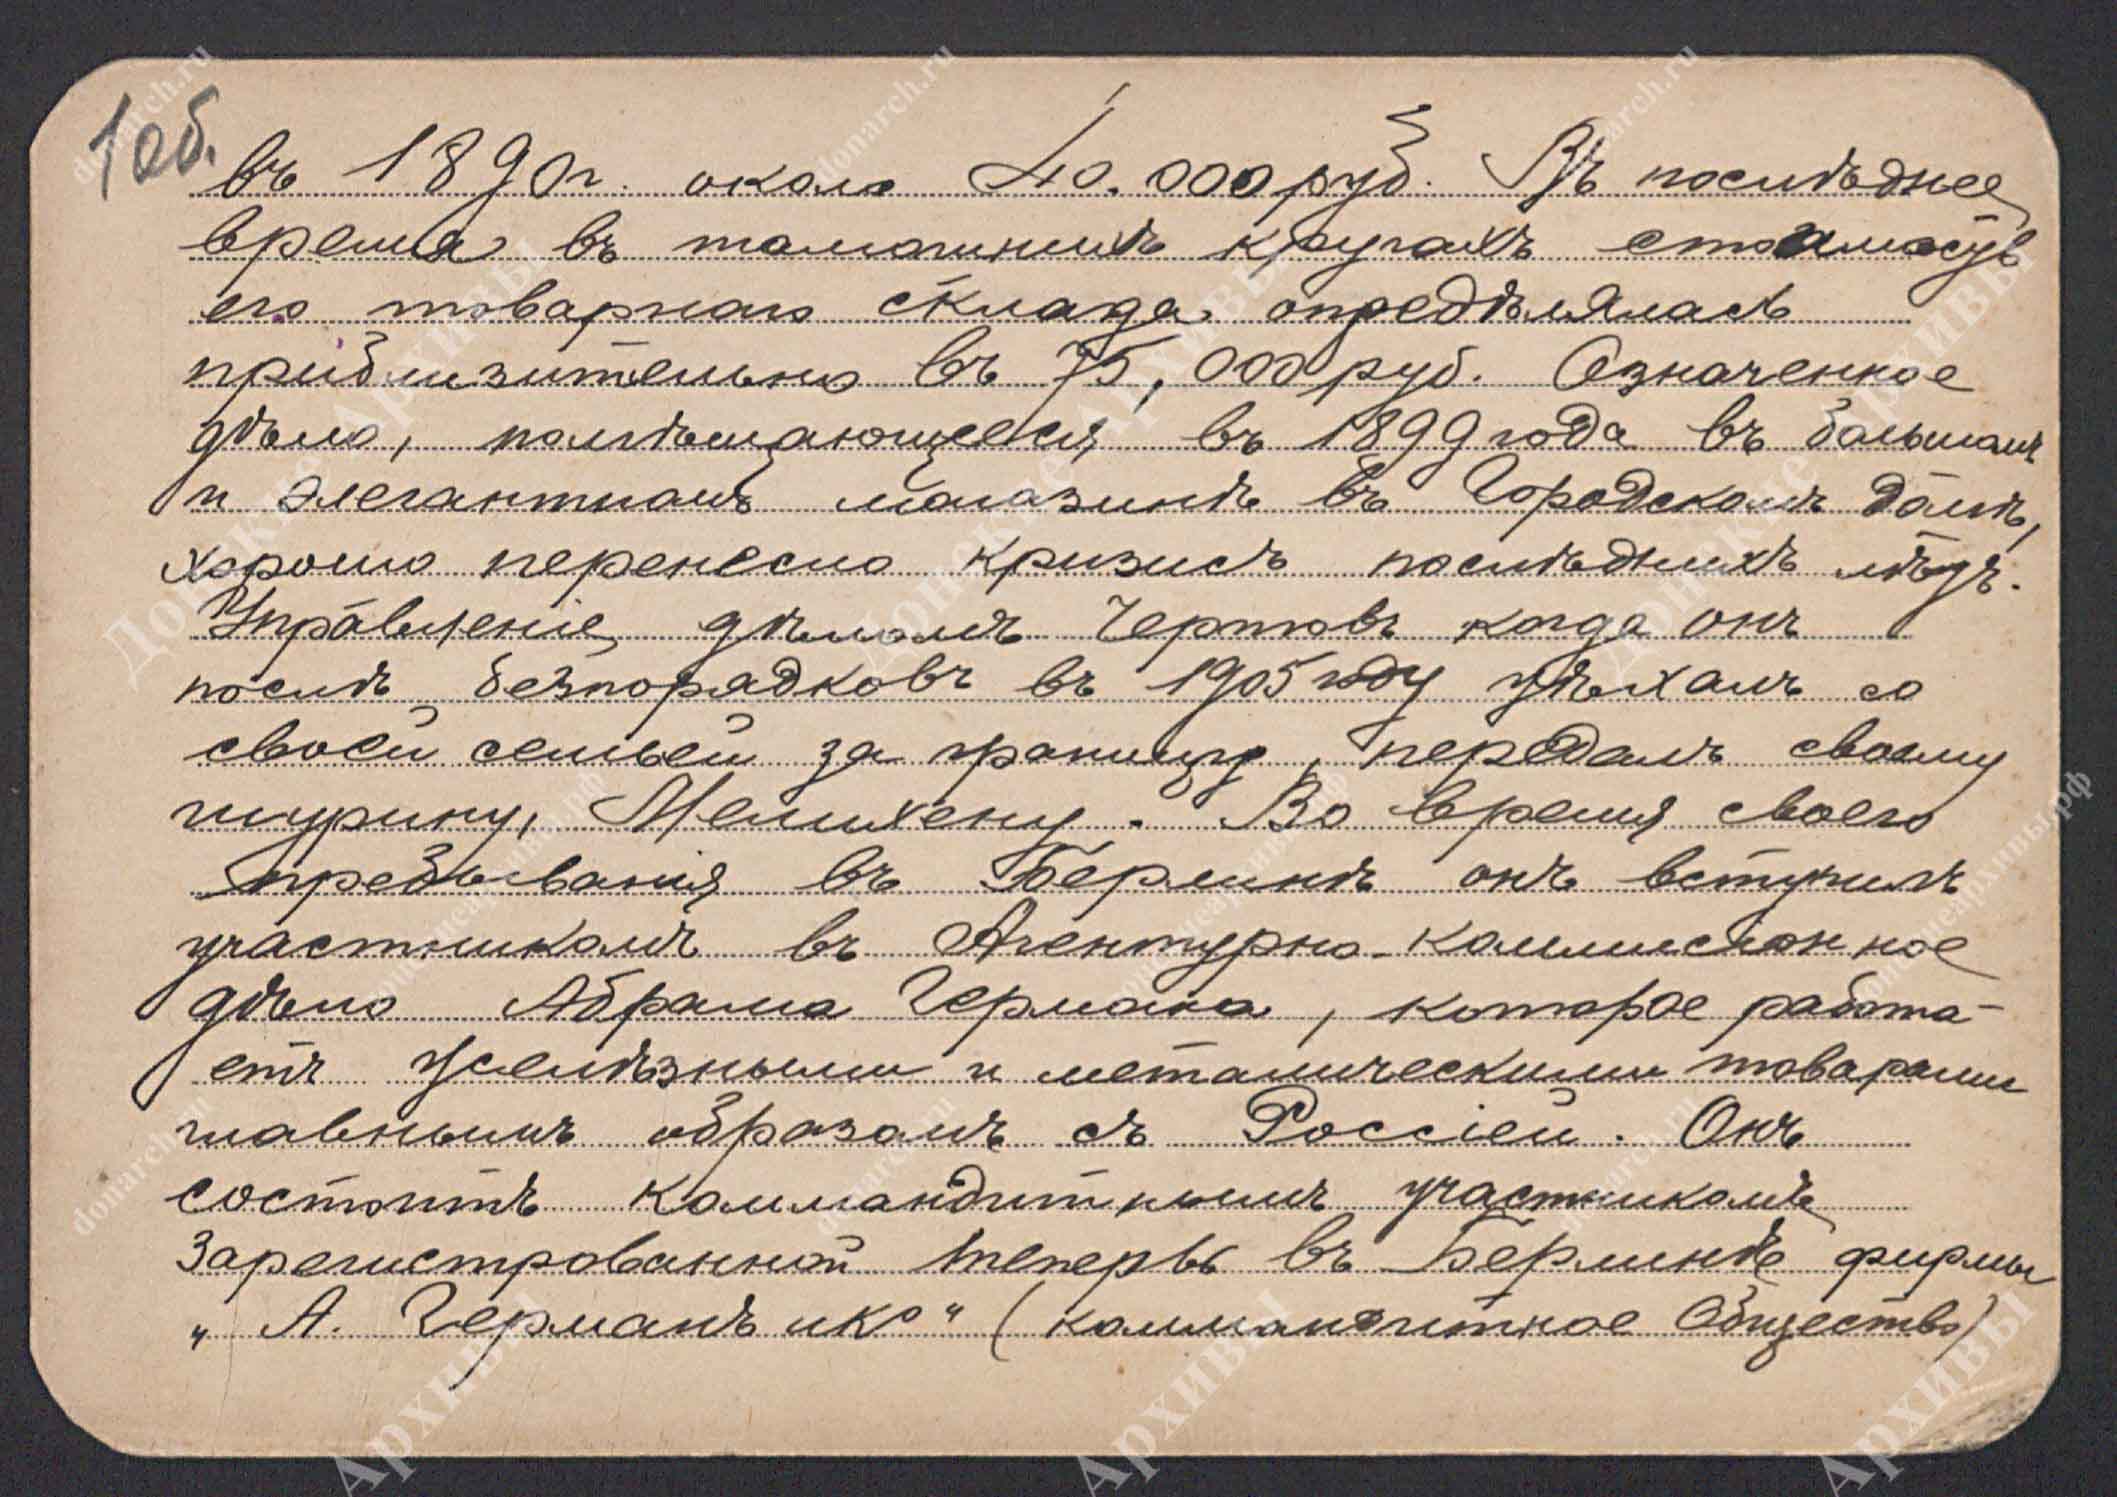 1об.
въ 1890г. около 40.000 руб. Въ послѣднее
время въ тамошнихъ кругахъ стоимость
его товарнаго склада опредѣлялась
приблизительно въ 75,000 руб. Означенное
дѣло, помѣщающееся въ 1899 года въ большомъ
и элегантномъ магазинѣ въ Городскомъ домѣ,
хорошо перенесло кризисъ послѣднихъ лѣтъ.
Управленіе дѣломъ Чертовъ когда онъ
послѣ безпорядковъ въ 1905 году уѣхалъ со
своей семьей за границу, передалъ своему
шурину, Мелихену. Во время своего
пребыванія въ Берлинѣ онъ вступилъ
участникомъ въ Агентурно-коммисіонное
дѣло Абрама Германа, которое работа-
етъ желѣзными и металическими товарами
главнымъ образомъ съ Россіей. Онъ
состоитъ коммандитнымъ участникомъ
зарегистрованной теперь въ Берлинѣ фирмы
„А. Германъ и Ко" (коммандитное Общество)
Донские Архивы
donarch.ru
донскиеархивы.рф